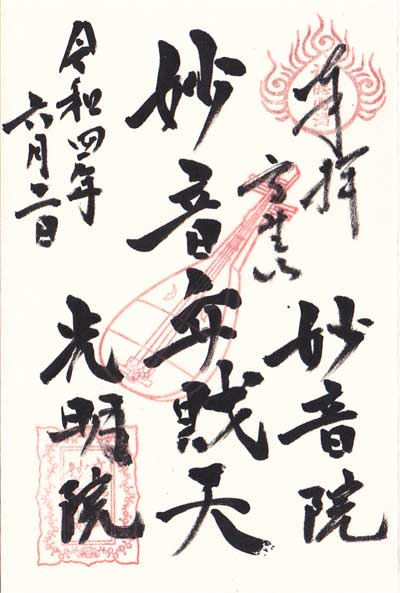 奉拝
妙音院
妙音弁財天
光明院
令和四年
六月二日